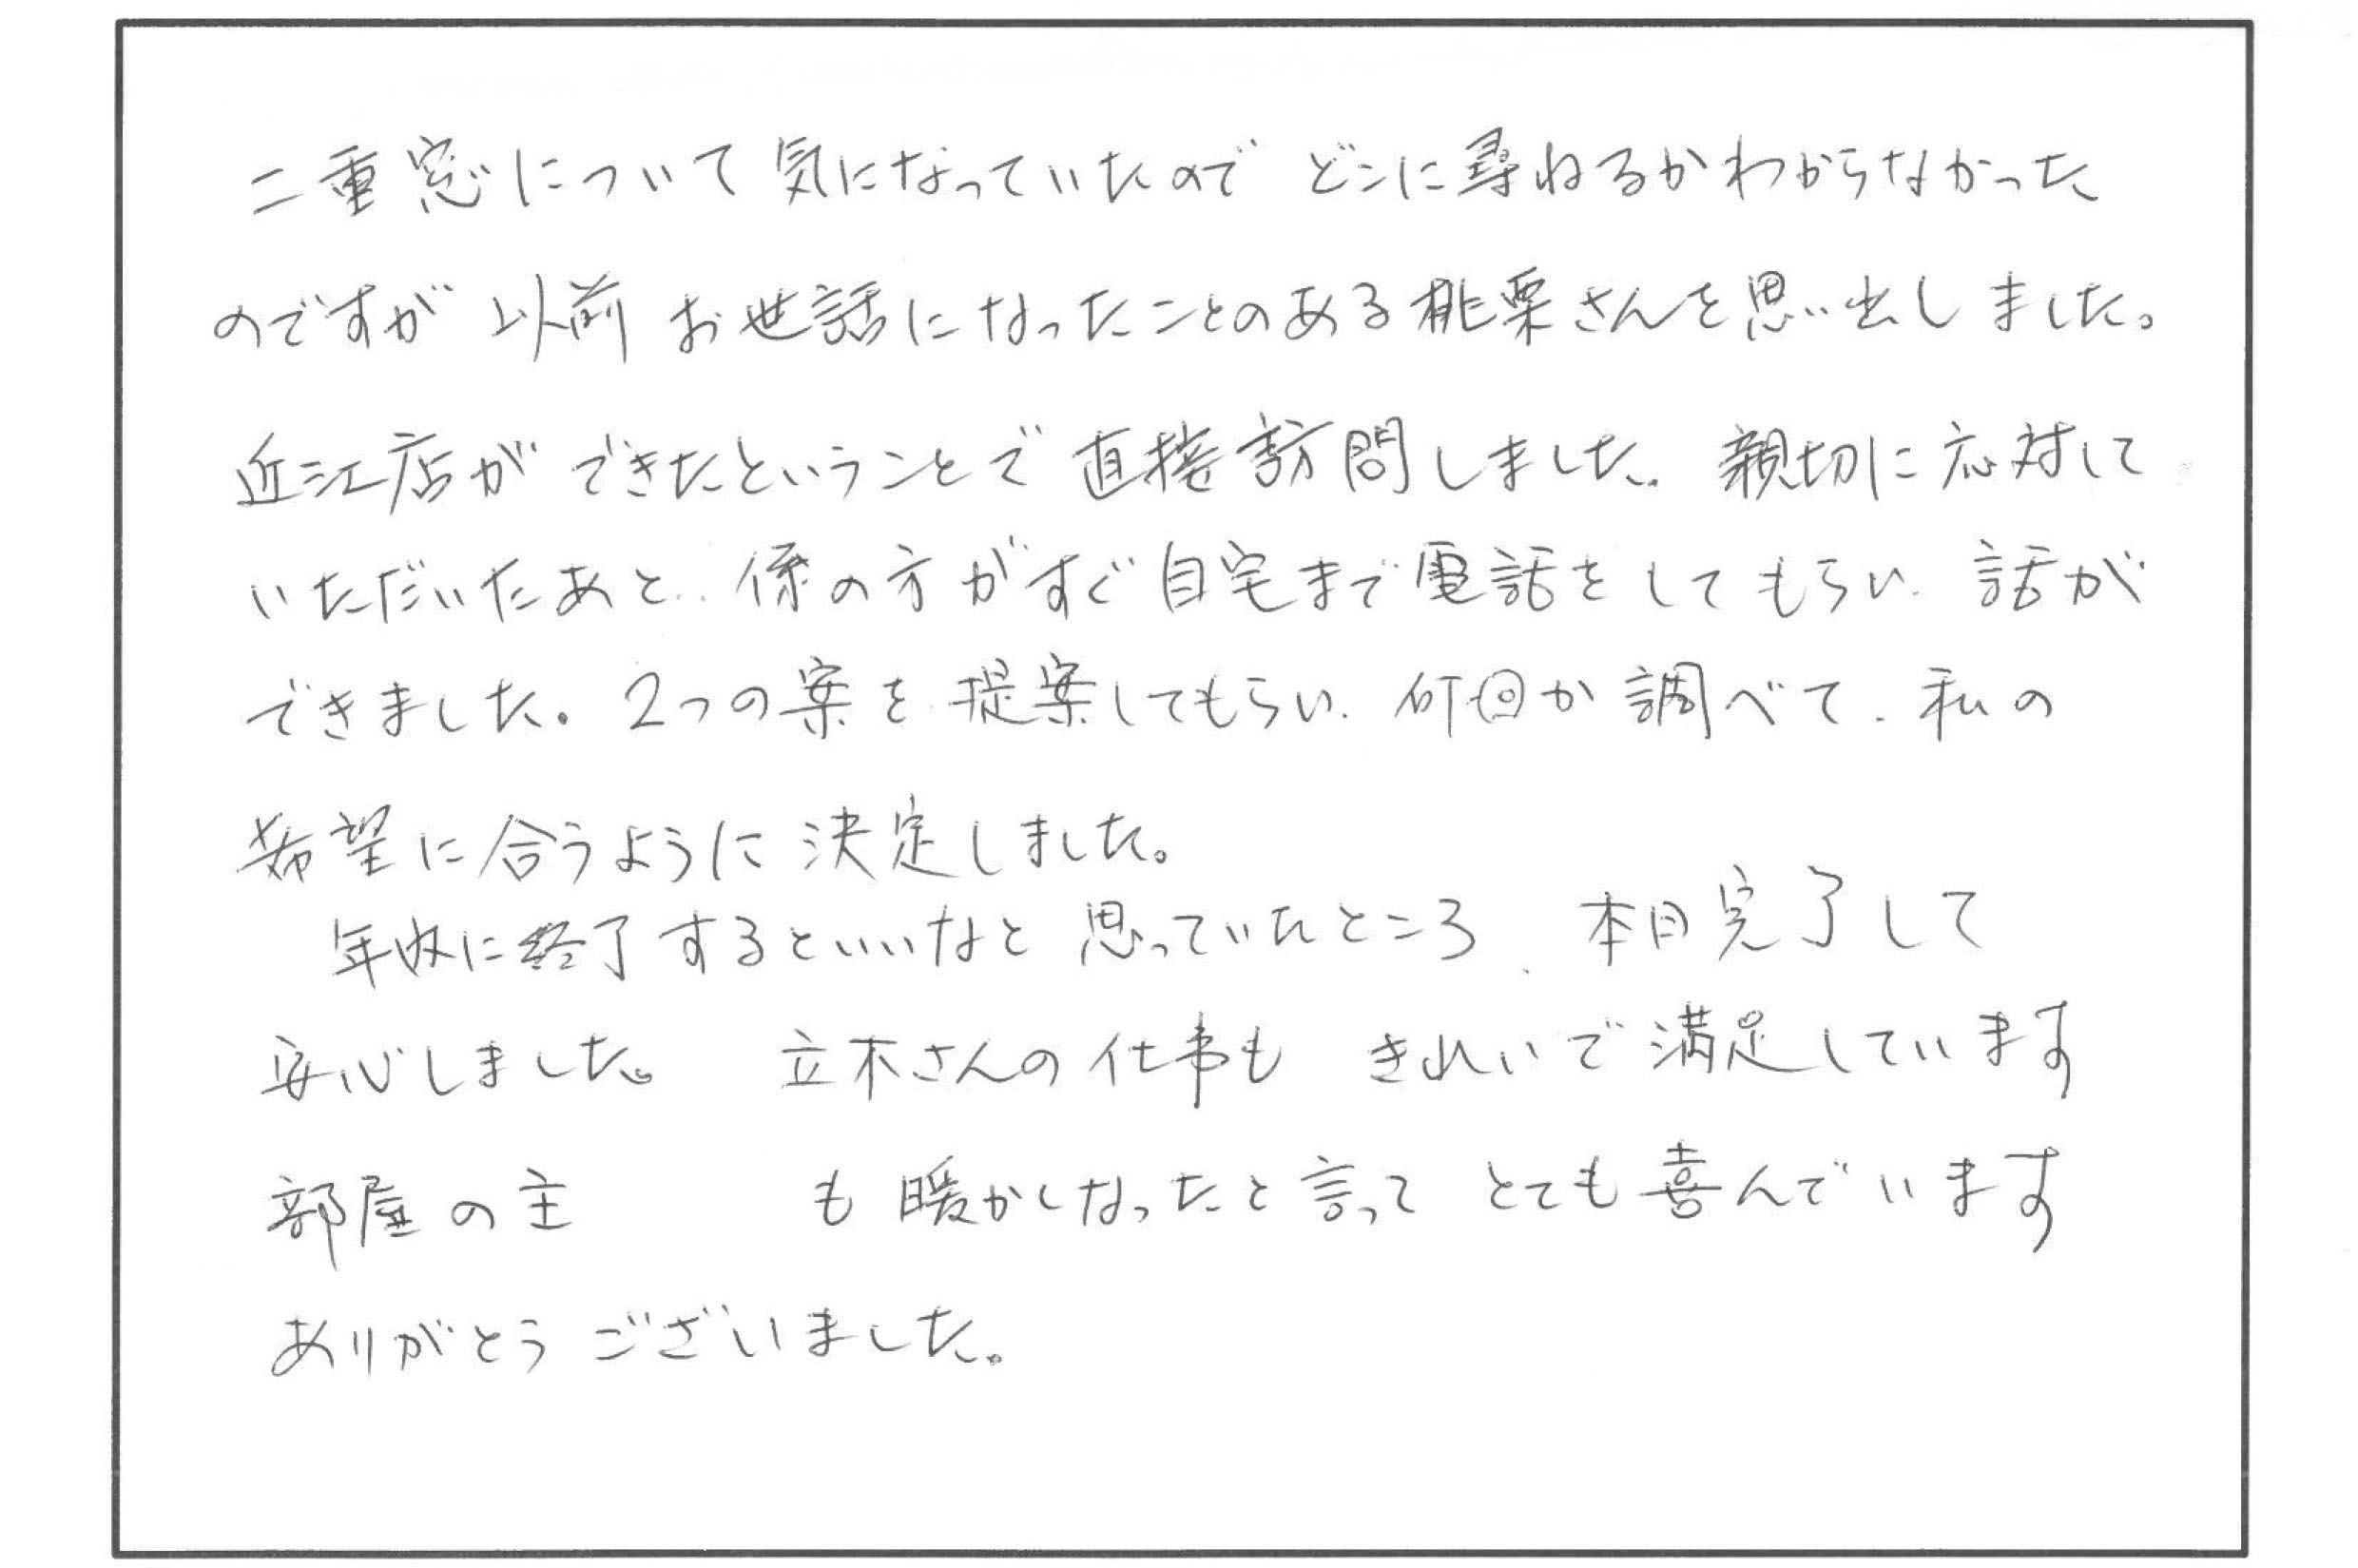 二重窓について気になっていたので どこに尋ねるかわからなかった
のですが 以前 お世話になったことのある桃栗さんを思い出しました。
近江店が できたということで 直接訪問しました。親切に応対して
いただいたあと、係の方がすぐ自宅まで電話をしてもらい、話が
できました。2つの案を提案してもらい、何回か調べて、私の
希望に合うように決定しました。
年内に終了するといいなと思っていたところ、本日完了して
安心しました。 立木さんの仕事も きれいで満足しています
部屋の主 も 暖かくなったと言って とても喜んでいます
ありがとう ございました。